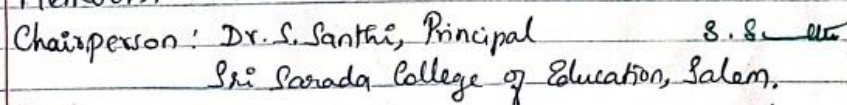 Chairperson: Dr. S. Santhi, Principal
Sri Sarada College of Education, Salem.